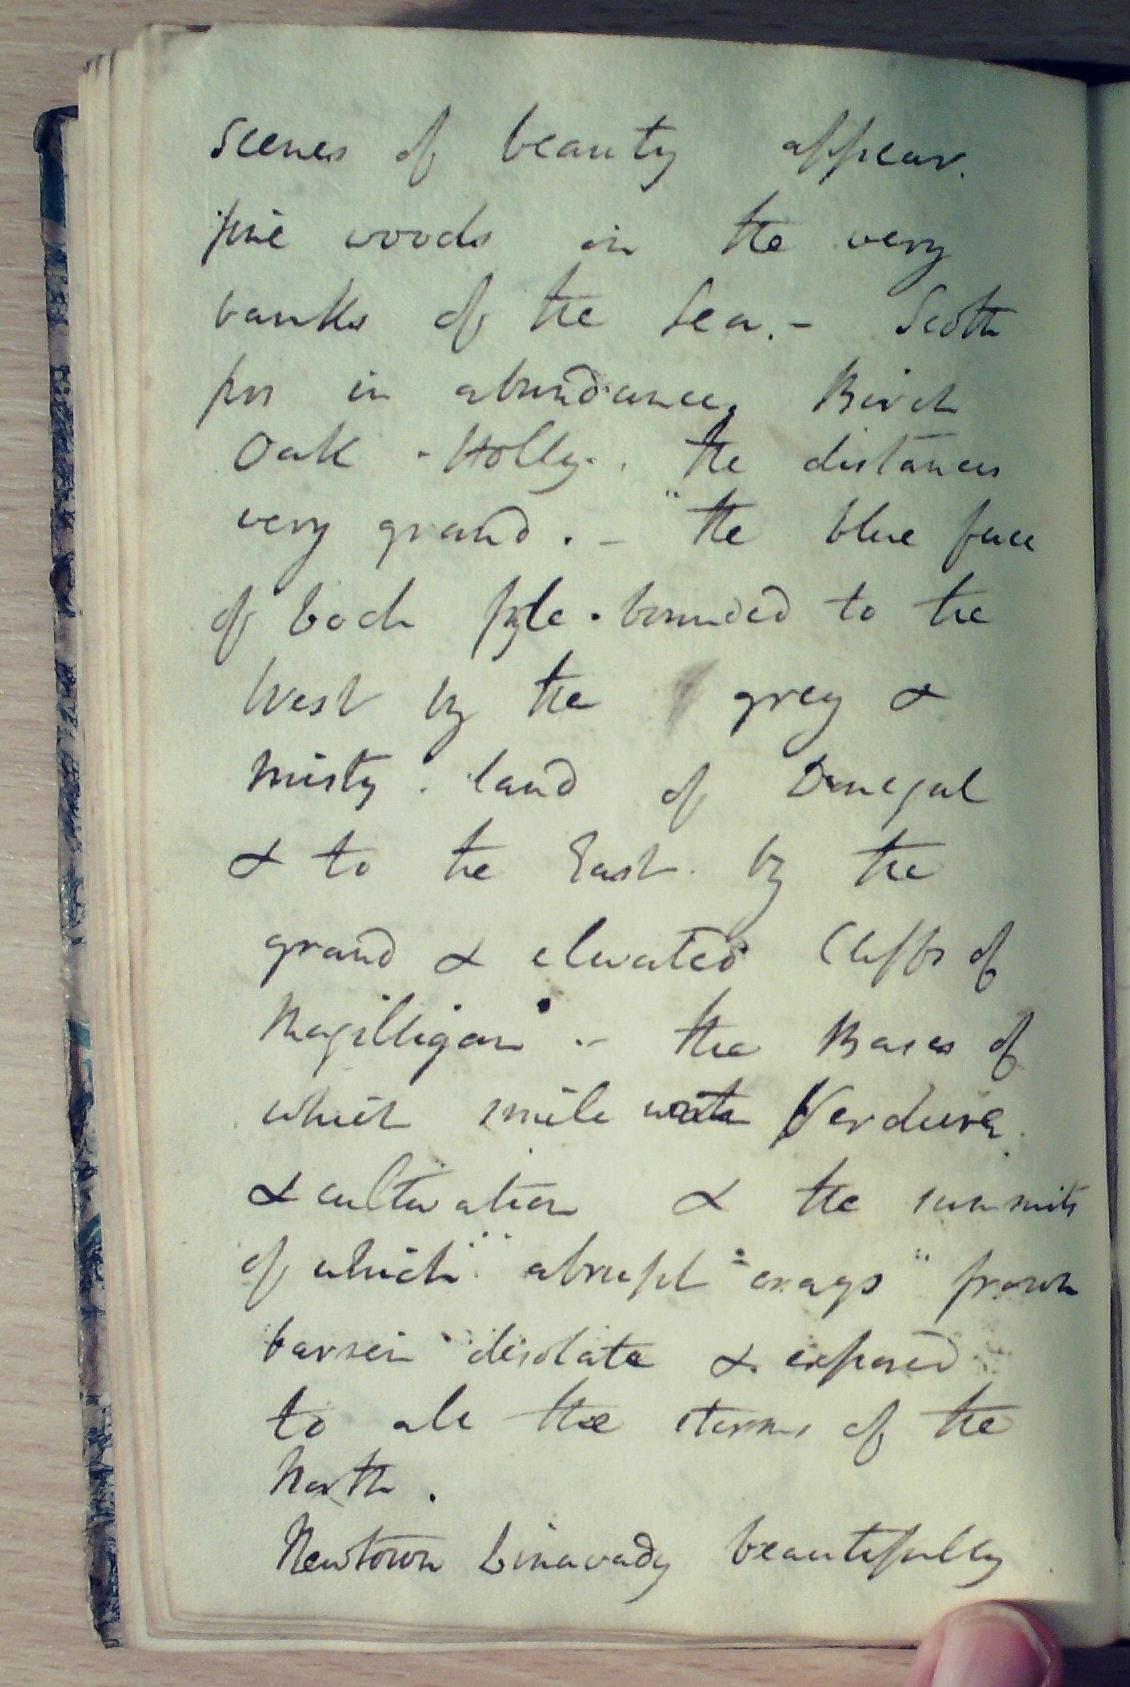 scenes of beauty appear.
fine woods on the very
banks of the Sea. - Scotch
firs in abundance. Birch
Oak - Holly. . the distances
very grand. - "the blue face
of Loch Foyle. bounded to the
West by the grey &
misty. land of Donegal
& to the East. by the
grand & elevated Cliffs of
Magilligan. - the Bases of
which smile with Verdure
& cultivation & the summits
of which "abrupt crags" frown
barren desolate & exposed
to all the storms of the
North.
Newtown Limavady beautifully